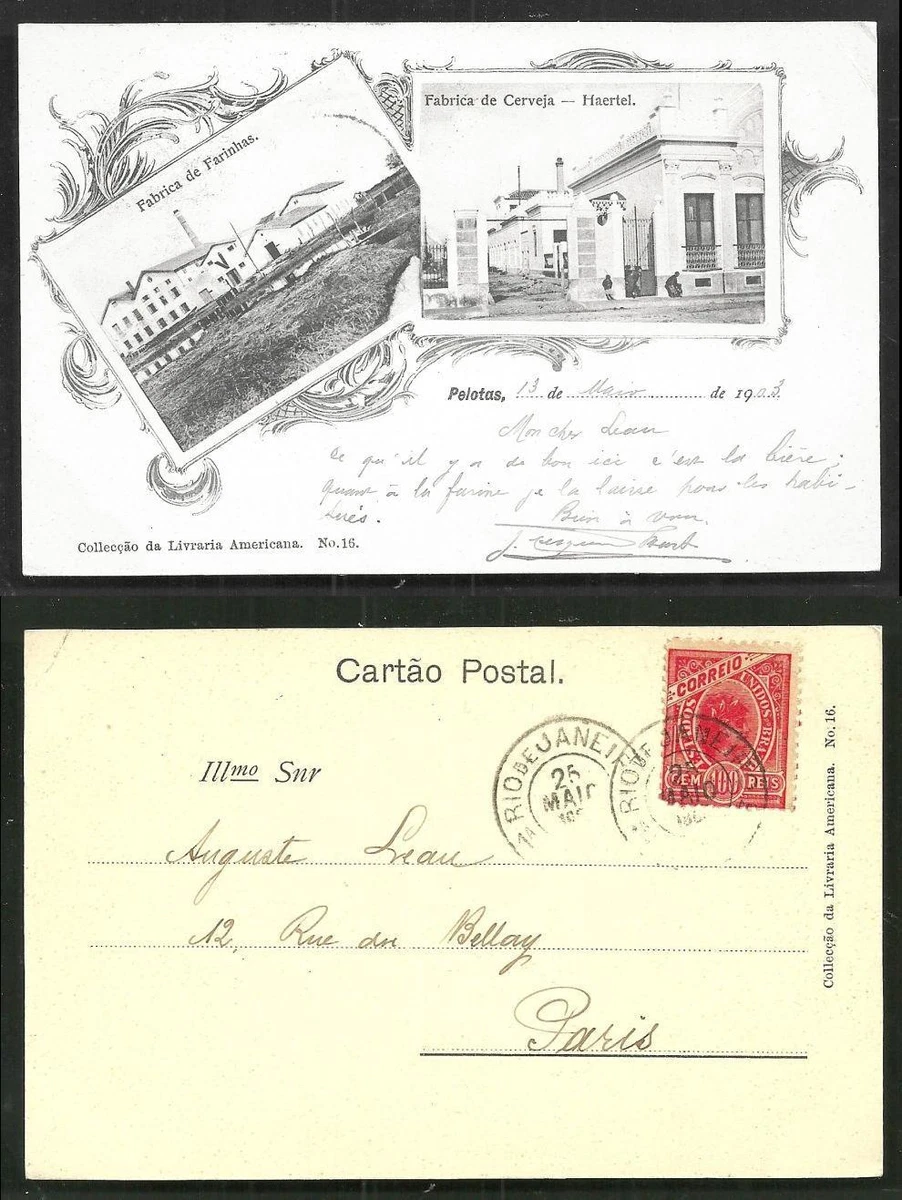 Fabrica de Farinhas.
Fabrica de Cerveja — Haertel.
Pelotas, 13 de Maio de 1903
Mon cher Leau
Ce qu'il y a de bon ici c'est la bière;
quant à la farine je la laisse pour les habi-
tués.
Bien à vous.
J.
Collecção da Livraria Americana. No. 16.
Cartão Postal.
Illmo Snr
Auguste Leau
12, Rue du Bellay
Paris
CORREIO
ESTADOS UNIDOS BRA
CEM 100 REIS
RIO DE JANEIR
1A
25
MAIO
190
RIO DE JANEIR
25
MAIO
190
Collecção da Livraria Americana. No. 16.